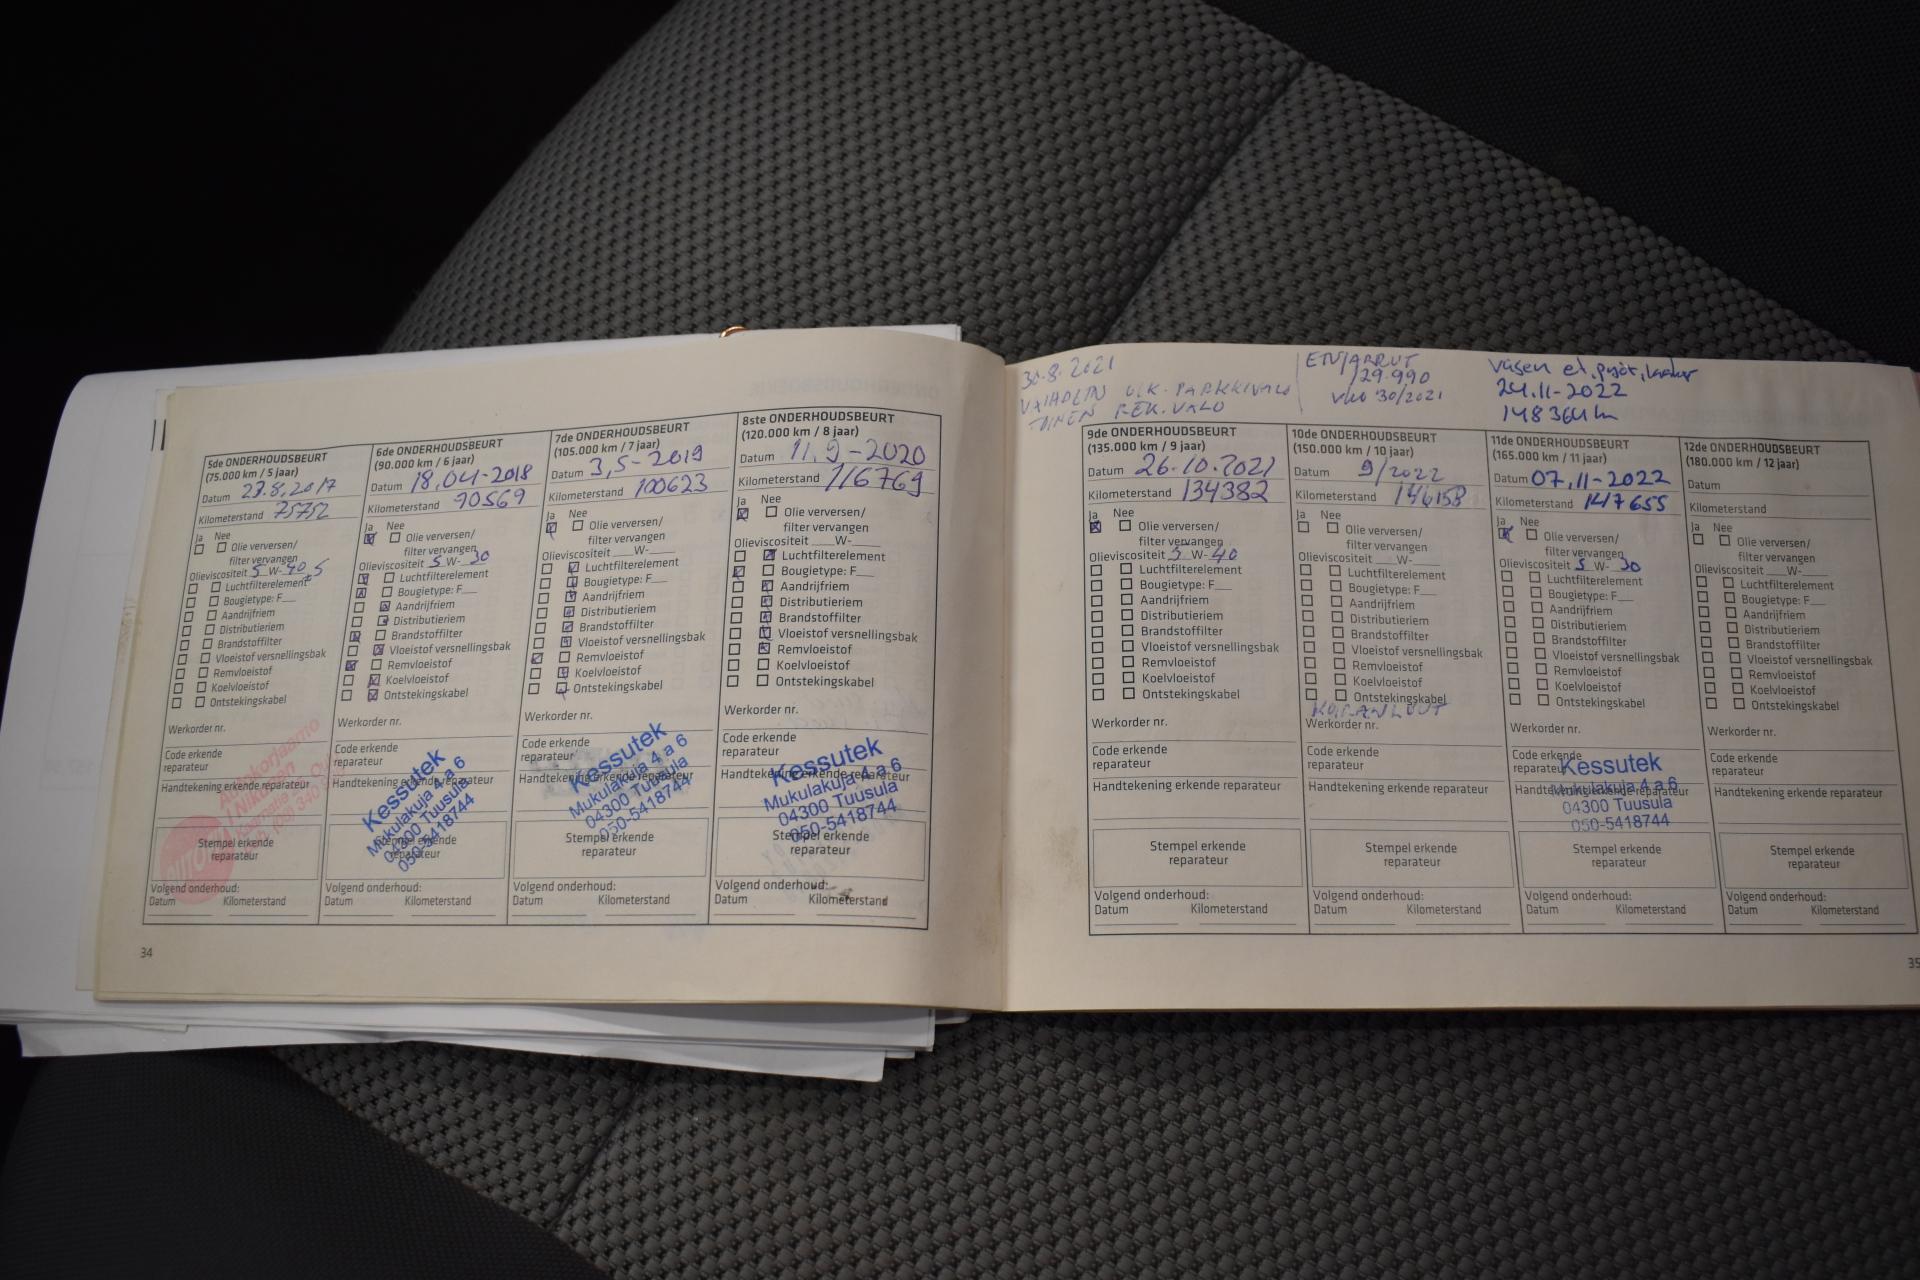 5de ONDERHOUDSBEURT
(75.000 km / 5 jaar)
Datum 23.8.2017
Kilometerstand 75752
Ja Nee
Olie verversen/
filter vervangen
Olieviscositeit 5 W- 40
Luchtfilterelement
Bougietype: F
Aandrijfriem
Distributieriem
Brandstoffilter
Vloeistof versnellingsbak
Remvloeistof
Koelvloeistof
Ontstekingskabel
Werkorder nr.
Code erkende
reparateur
Handtekening erkende reparateur
Autokorjaamo
Stempel erkende
reparateur
Volgend onderhoud:
Datum Kilometerstand
6de ONDERHOUDSBEURT
(90.000 km / 6 jaar)
Datum 18.04-2018
Kilometerstand 90569
Ja Nee
Olie verversen/
filter vervangen
Olieviscositeit 5 W- 30
Luchtfilterelement
Bougietype: F
Aandrijfriem
Distributieriem
Brandstoffilter
Vloeistof versnellingsbak
Remvloeistof
Koelvloeistof
Ontstekingskabel
Werkorder nr.
Code erkende
reparateur
Handtekening erkende reparateur
Kessutek
Mukulakuja 4 a 6
04300 Tuusula
050-5418744
Stempel erkende
reparateur
Volgend onderhoud:
Datum Kilometerstand
7de ONDERHOUDSBEURT
(105.000 km / 7 jaar)
Datum 3,5-2019
Kilometerstand 100623
Ja Nee
Olie verversen/
filter vervangen
Olieviscositeit W-
Luchtfilterelement
Bougietype: F
Aandrijfriem
Distributieriem
Brandstoffilter
Vloeistof versnellingsbak
Remvloeistof
Koelvloeistof
Ontstekingskabel
Werkorder nr.
Code erkende
reparateur
Handtekening erkende reparateur
Kessutek
Mukulakuja 4 a 6
04300 Tuusula
050-5418744
Stempel erkende
reparateur
Volgend onderhoud:
Datum Kilometerstand
8ste ONDERHOUDSBEURT
(120.000 km / 8 jaar)
Datum 11.9-2020
Kilometerstand 116769
Ja Nee
Olie verversen/
filter vervangen
Olieviscositeit W-
Luchtfilterelement
Bougietype: F
Aandrijfriem
Distributieriem
Brandstoffilter
Vloeistof versnellingsbak
Remvloeistof
Koelvloeistof
Ontstekingskabel
Werkorder nr.
Code erkende
reparateur
Handtekening erkende reparateur
Kessutek
Mukulakuja 4 a 6
04300 Tuusula
050-5418744
Stempel erkende
reparateur
Volgend onderhoud:
Datum Kilometerstand
34
30.8.2021
ULK. PARKKIVALO
TOINEN REK.VALO
ETUJARRUT
129.990
vko 30/2021
Vasen et.
24.11-2022
148364 km
9de ONDERHOUDSBEURT
(135.000 km / 9 jaar)
Datum 26.10.2021
Kilometerstand 134382
Ja Nee
Olie verversen/
filter vervangen
Olieviscositeit 5 W- 40
Luchtfilterelement
Bougietype: F
Aandrijfriem
Distributieriem
Brandstoffilter
Vloeistof versnellingsbak
Remvloeistof
Koelvloeistof
Ontstekingskabel
Werkorder nr.
Code erkende
reparateur
Handtekening erkende reparateur
Stempel erkende
reparateur
Volgend onderhoud:
Datum Kilometerstand
10de ONDERHOUDSBEURT
(150.000 km / 10 jaar)
Datum 9/2022
Kilometerstand 146158
Ja Nee
Olie verversen/
filter vervangen
Olieviscositeit W-
Luchtfilterelement
Bougietype: F
Aandrijfriem
Distributieriem
Brandstoffilter
Vloeistof versnellingsbak
Remvloeistof
Koelvloeistof
Ontstekingskabel
Werkorder nr.
Code erkende
reparateur
Handtekening erkende reparateur
Stempel erkende
reparateur
Volgend onderhoud:
Datum Kilometerstand
11de ONDERHOUDSBEURT
(165.000 km / 11 jaar)
Datum 07.11-2022
Kilometerstand 147655
Ja Nee
Olie verversen/
filter vervangen
Olieviscositeit 5 W- 30
Luchtfilterelement
Bougietype: F
Aandrijfriem
Distributieriem
Brandstoffilter
Vloeistof versnellingsbak
Remvloeistof
Koelvloeistof
Ontstekingskabel
Werkorder nr.
Code erkende
reparateur
Kessutek
Handtekening erkende reparateur
Mukulakuja 4 a 6
04300 Tuusula
050-5418744
Stempel erkende
reparateur
Volgend onderhoud:
Datum Kilometerstand
12de ONDERHOUDSBEURT
(180.000 km / 12 jaar)
Datum
Kilometerstand
Ja Nee
Olie verversen/
filter vervangen
Olieviscositeit W-
Luchtfilterelement
Bougietype: F
Aandrijfriem
Distributieriem
Brandstoffilter
Vloeistof versnellingsbak
Remvloeistof
Koelvloeistof
Ontstekingskabel
Werkorder nr.
Code erkende
reparateur
Handtekening erkende reparateur
Stempel erkende
reparateur
Volgend onderhoud:
Datum Kilometerstand
35